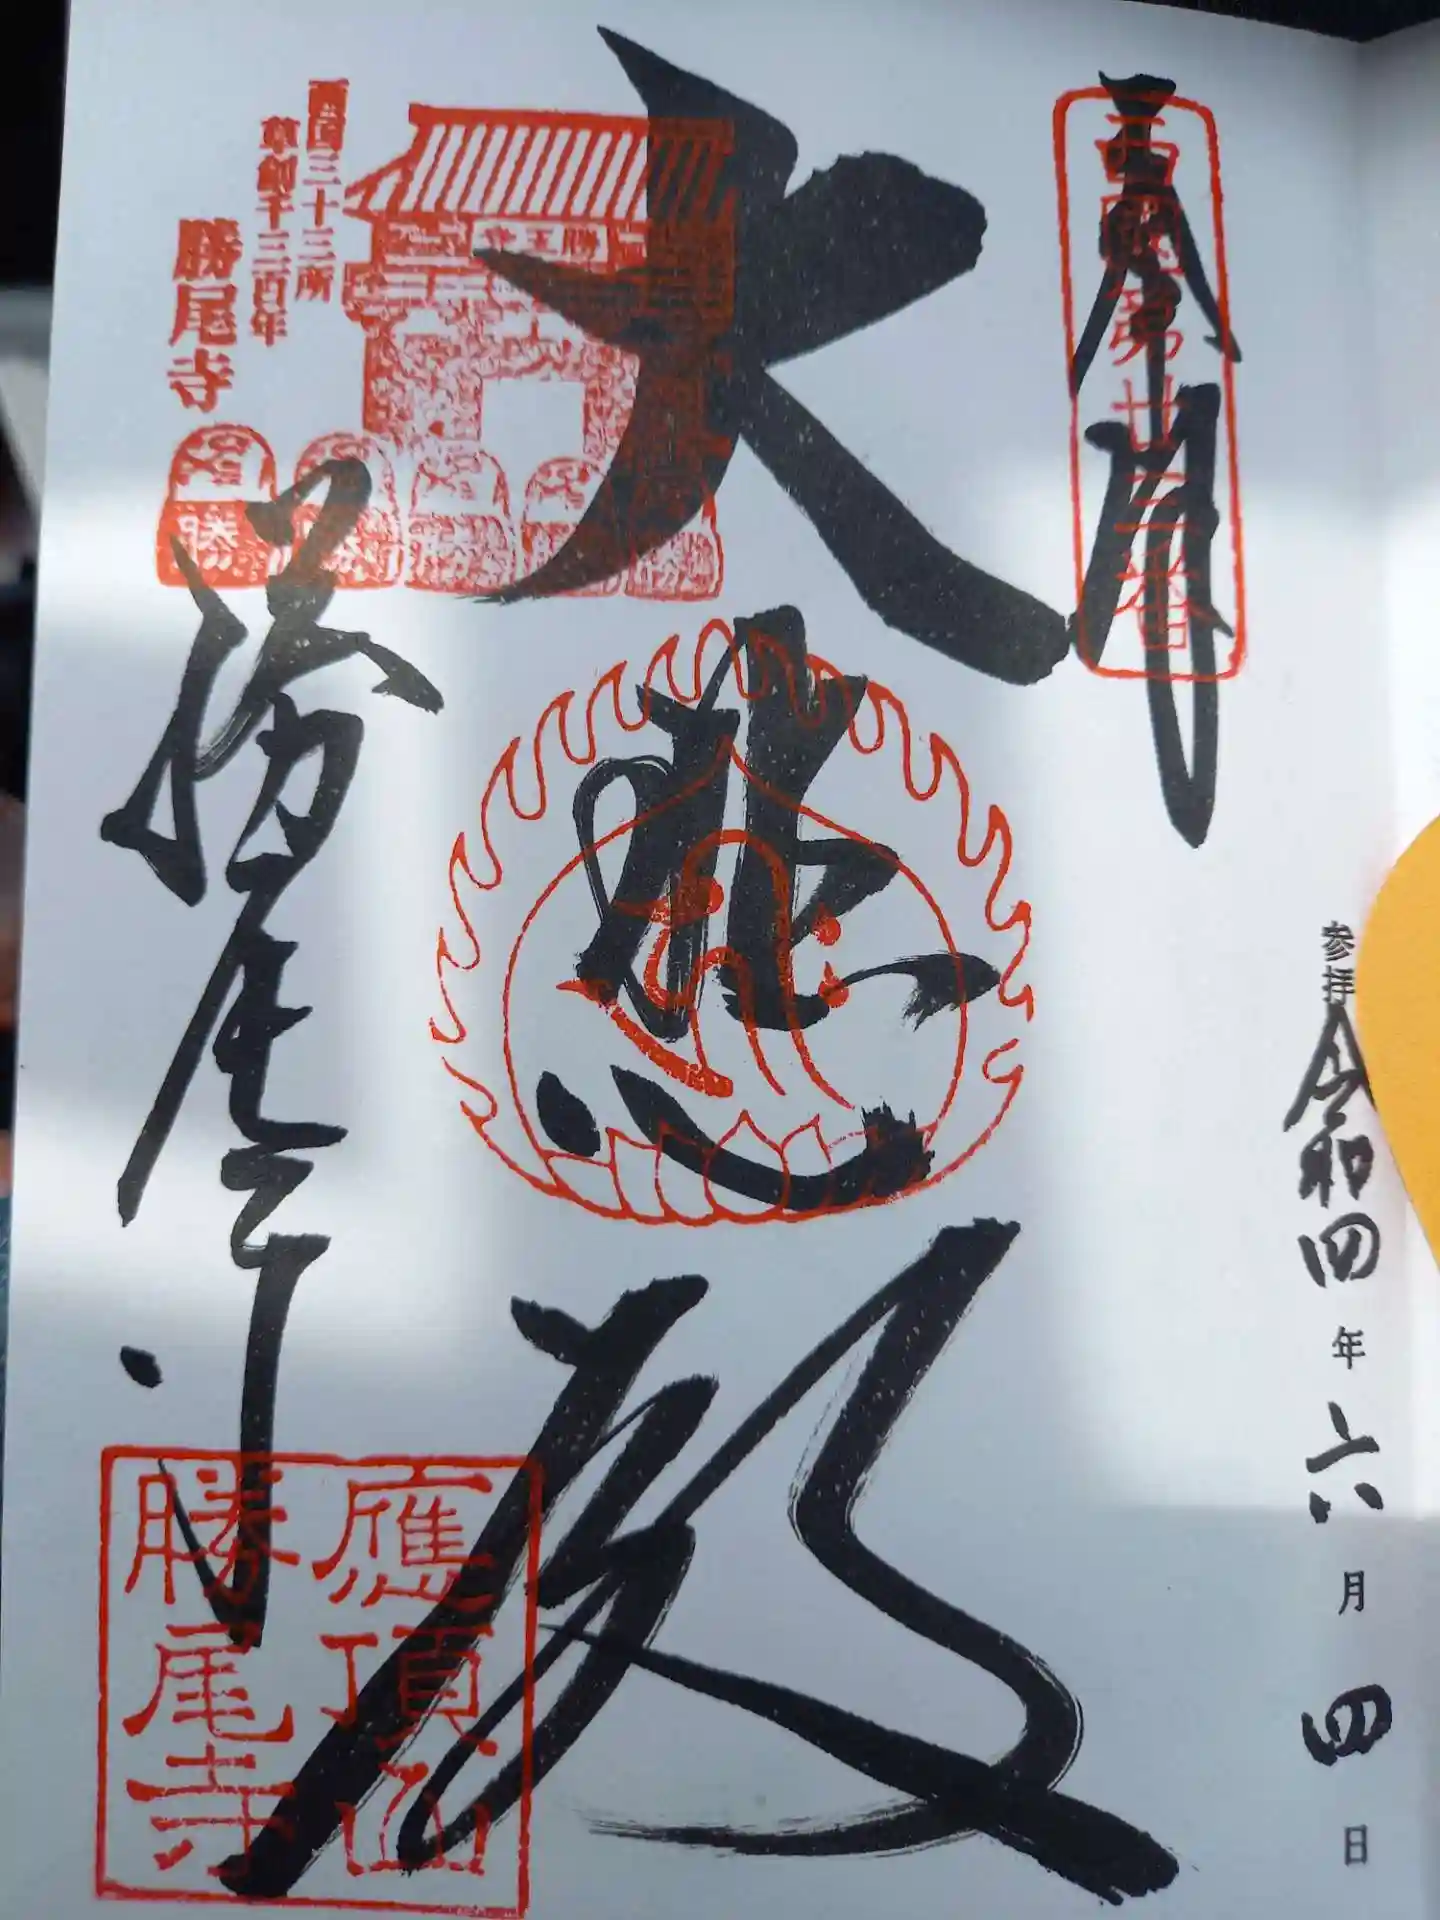 奉拝
西國第廿三番
大悲殿
勝尾寺
西国三十三所
草創千三百年
勝尾寺
勝王寺
勝
勝
勝
勝
勝
應頂山
勝尾寺
参拝 令和四年六月四日